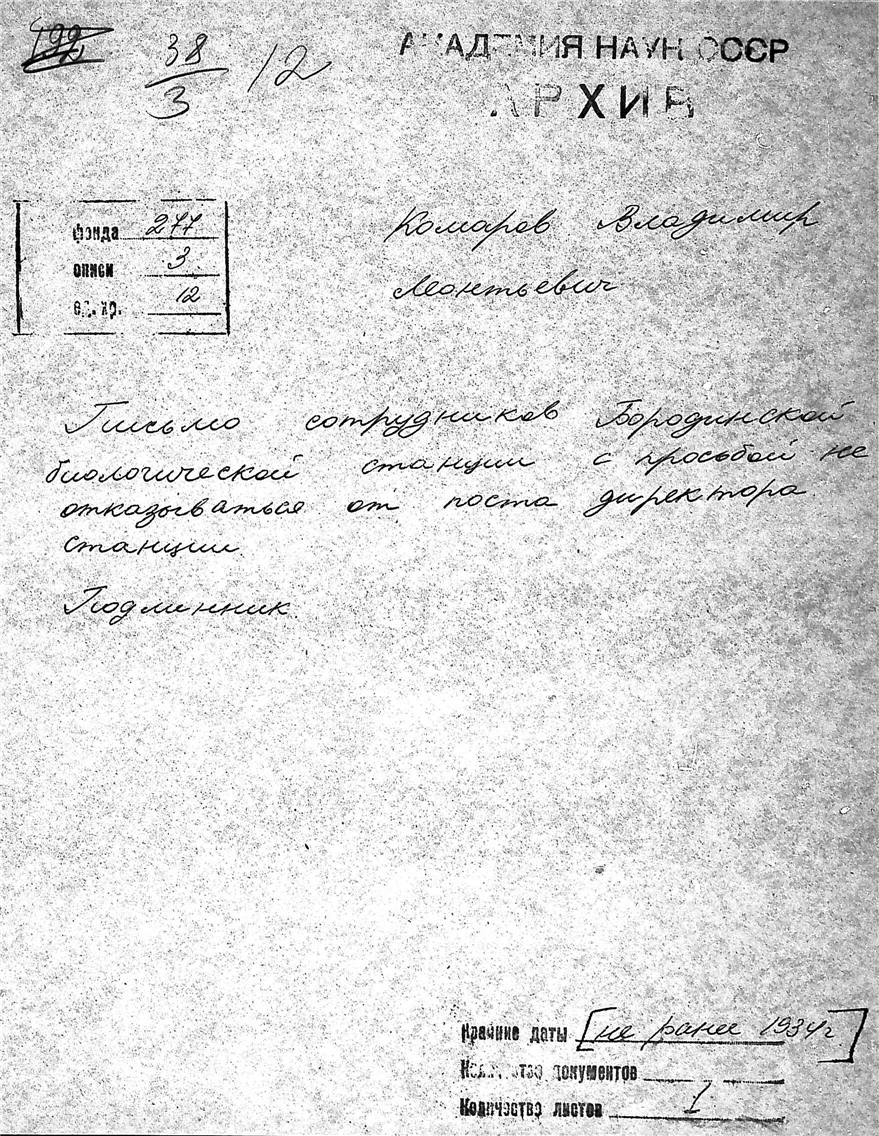 38/3 12
АКАДЕМИЯ НАУК СССР
АРХИВ
фонда 277
описи 3
ед. хр. 12
Комаров Владимир
Леонтьевич
Письмо сотрудников Бородинской
биологической станции с просьбой не
отказываться от поста директора
станции.
Подлинник.
Крайние даты [не ранее 1934г]
Количество документов
Количество листов 1